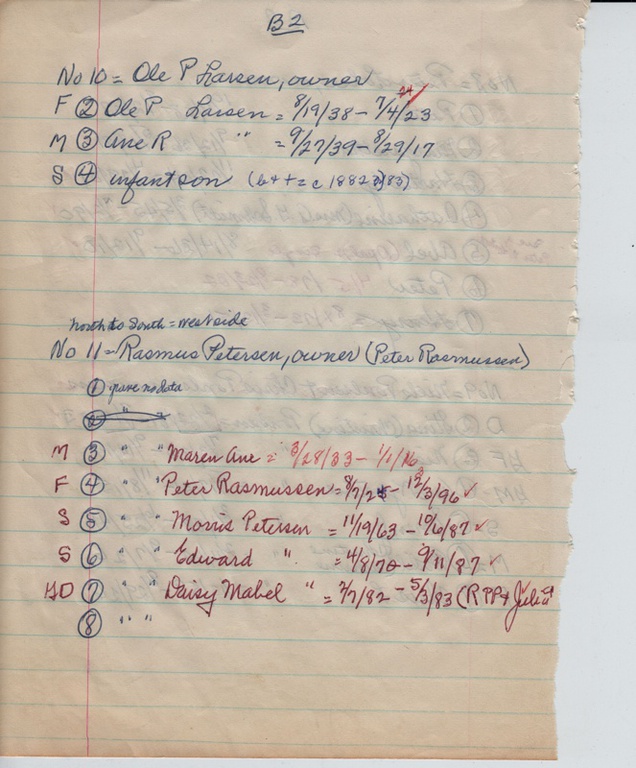 B2
No 10 = Ole P Larsen, owner
F ② Ole P Larsen = 8/19/38 - 7/4/23
M ③ Ane R " = 9/27/39 - 8/29/17
S ④ infant son (b + + = c 1882 83)
north to South = west side
No 11 = Rasmus Petersen, owner (Peter Rasmussen)
① grave no data
② " "
M ③ " " Maren Ane = 3/28/33 - 1/1/16
F ④ " " Peter Rasmussen = 8/7/25 - 12/3/96 ✓
S ⑤ " " Morris Petersen = 11/19/63 - 10/6/87 ✓
S ⑥ " " Edward " = 4/8/70 - 9/11/87 ✓
GD ⑦ " " Daisy Mabel " = 7/7/82 - 5/3/83 (RPP + Julia
⑧ " "